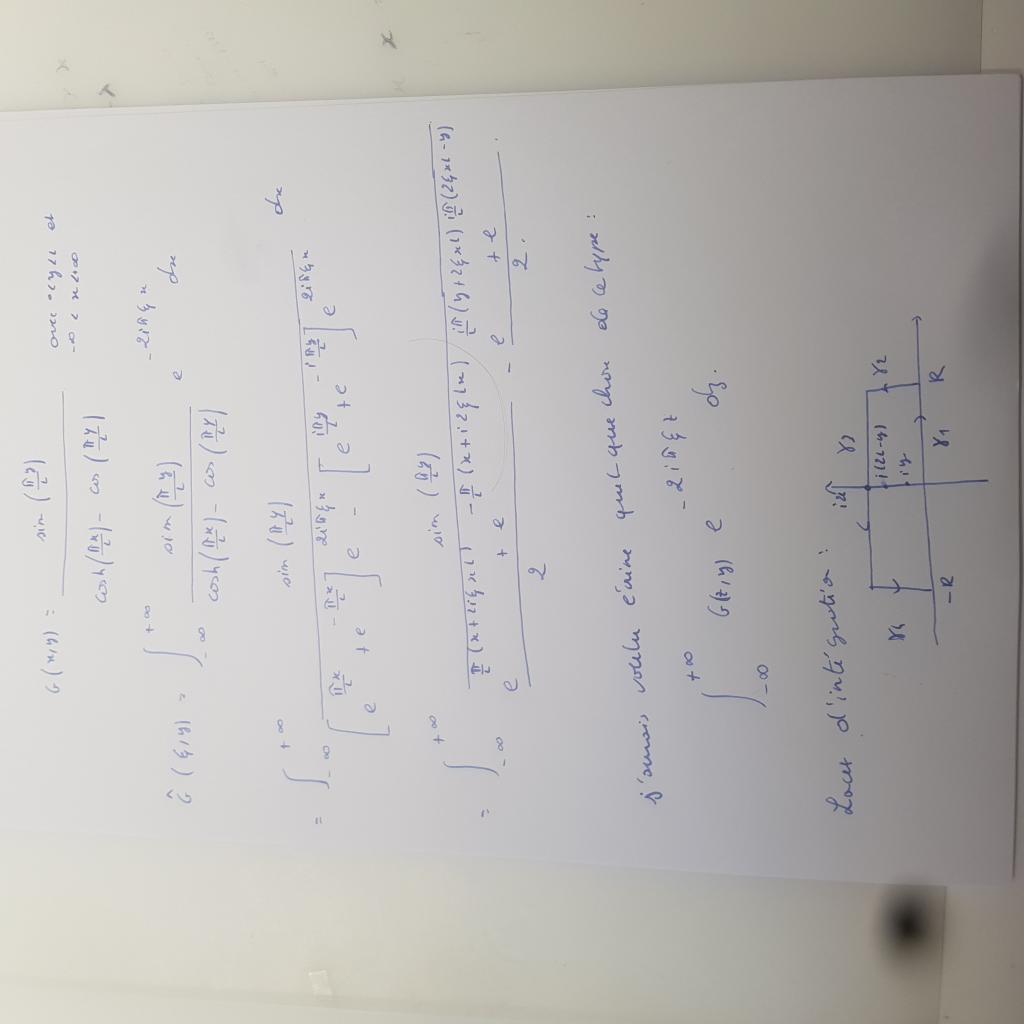 G(x,y) = sin(πy/L) / (cosh(πx/L) - cos(πy/L)) avec 0<y<L et
-∞ < x <+∞
Ĝ(ξ,y) = ∫_{-∞}^{+∞} sin(πy/L) / (cosh(πx/L) - cos(πy/L)) e^{-2iπξx} dx
= ∫_{-∞}^{+∞} sin(πy/L) / ([e^{πx/L} + e^{-πx/L}] e^{2iπξx} - [e^{iπy/L} + e^{-iπy/L}] e^{2iπξx}) dx
= ∫_{-∞}^{+∞} sin(πy/L) / ((e^{π/L(x+2iξxL)} + e^{-π/L(x+i2ξLx)})/2 - (e^{iπ/L(y+2ξxL)} + e^{iπ/L(2ξxL-y)})/2).
j'aurais voulu écrire quelque chose de ce type :
∫_{-∞}^{+∞} G(z,y) e^{-2iπξz} dz.
Lacet d'intégration :
i2L γ3
i(2L-y) γ2
γ4 iy
-R γ1 R